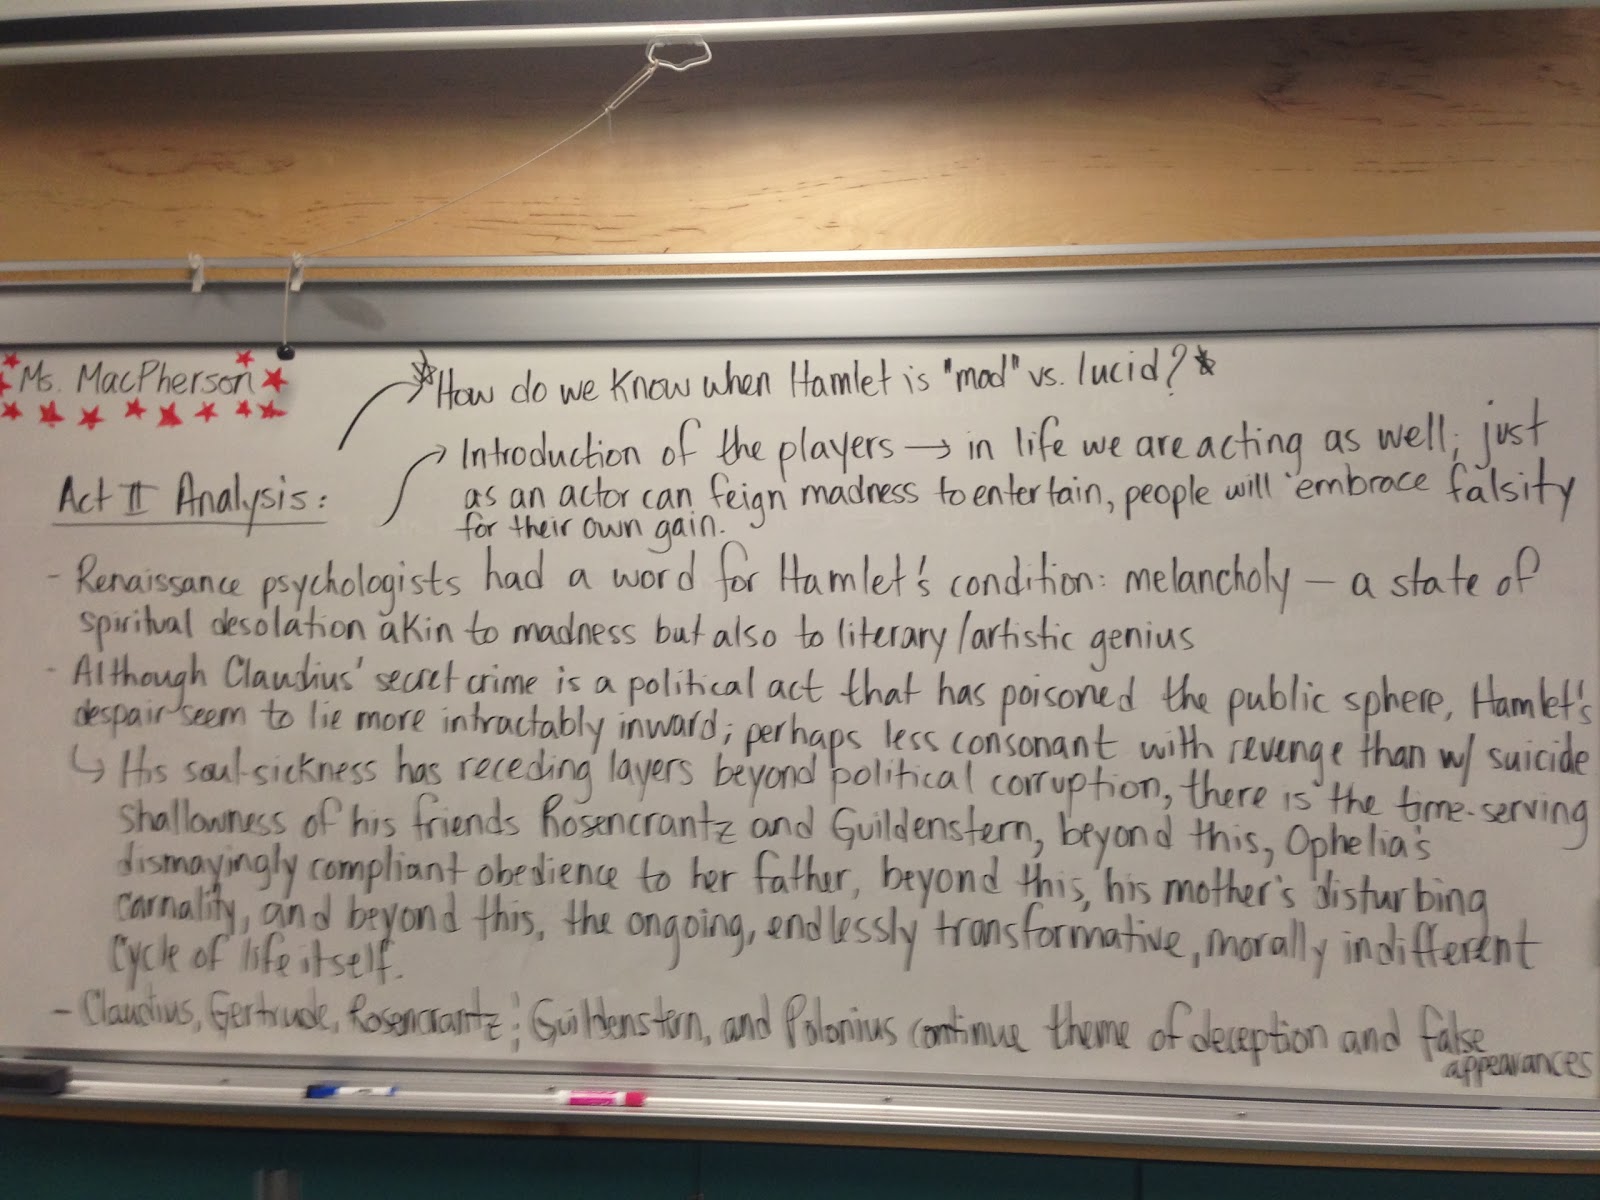 Ms. MacPherson
*How do we know when Hamlet is "mad" vs. lucid?*
Introduction of the players → in life we are acting as well; just
as an actor can feign madness to entertain, people will embrace falsity
for their own gain.
Act II Analysis:
- Renaissance psychologists had a word for Hamlet's condition: melancholy – a state of
spiritual desolation akin to madness but also to literary/artistic genius
- Although Claudius' secret crime is a political act that has poisoned the public sphere, Hamlet's
despair seem to lie more intractably inward; perhaps less consonant with revenge than w/ suicide
↳ His soul-sickness has receding layers beyond political corruption, there is the time-serving
shallowness of his friends Rosencrantz and Guildenstern, beyond this, Ophelia's
dismayingly compliant obedience to her father, beyond this, his mother's disturbing
carnality, and beyond this, the ongoing, endlessly transformative, morally indifferent
cycle of life itself.
- Claudius, Gertrude, Rosencrantz; Guildenstern, and Polonius continue theme of deception and false
appearances